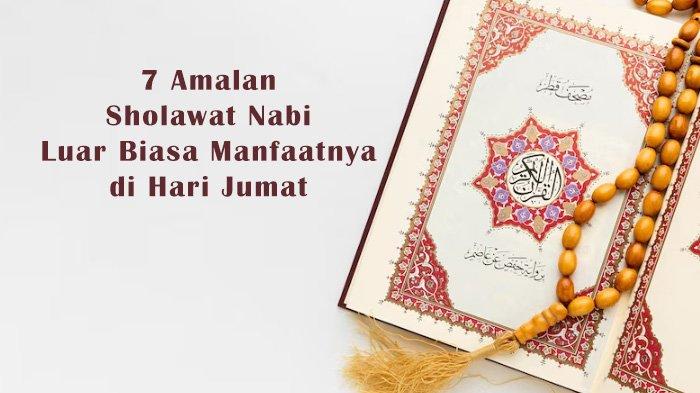 7 Amalan
Sholawat Nabi
Luar Biasa Manfaatnya
di Hari Jumat
مصحف قطر
القرآن الكريم
برواية حفص عن عاصم